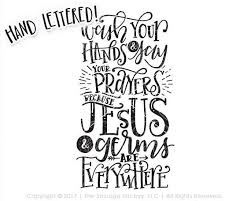 HAND LETTERED!
wash Your
HANDS & say
YOUR
PRAYERS
BECAUSE
JESUS
& germs
ARE
EVERYWHERE
Copyright © 2017 | The
LLC | All Rights Reserved.